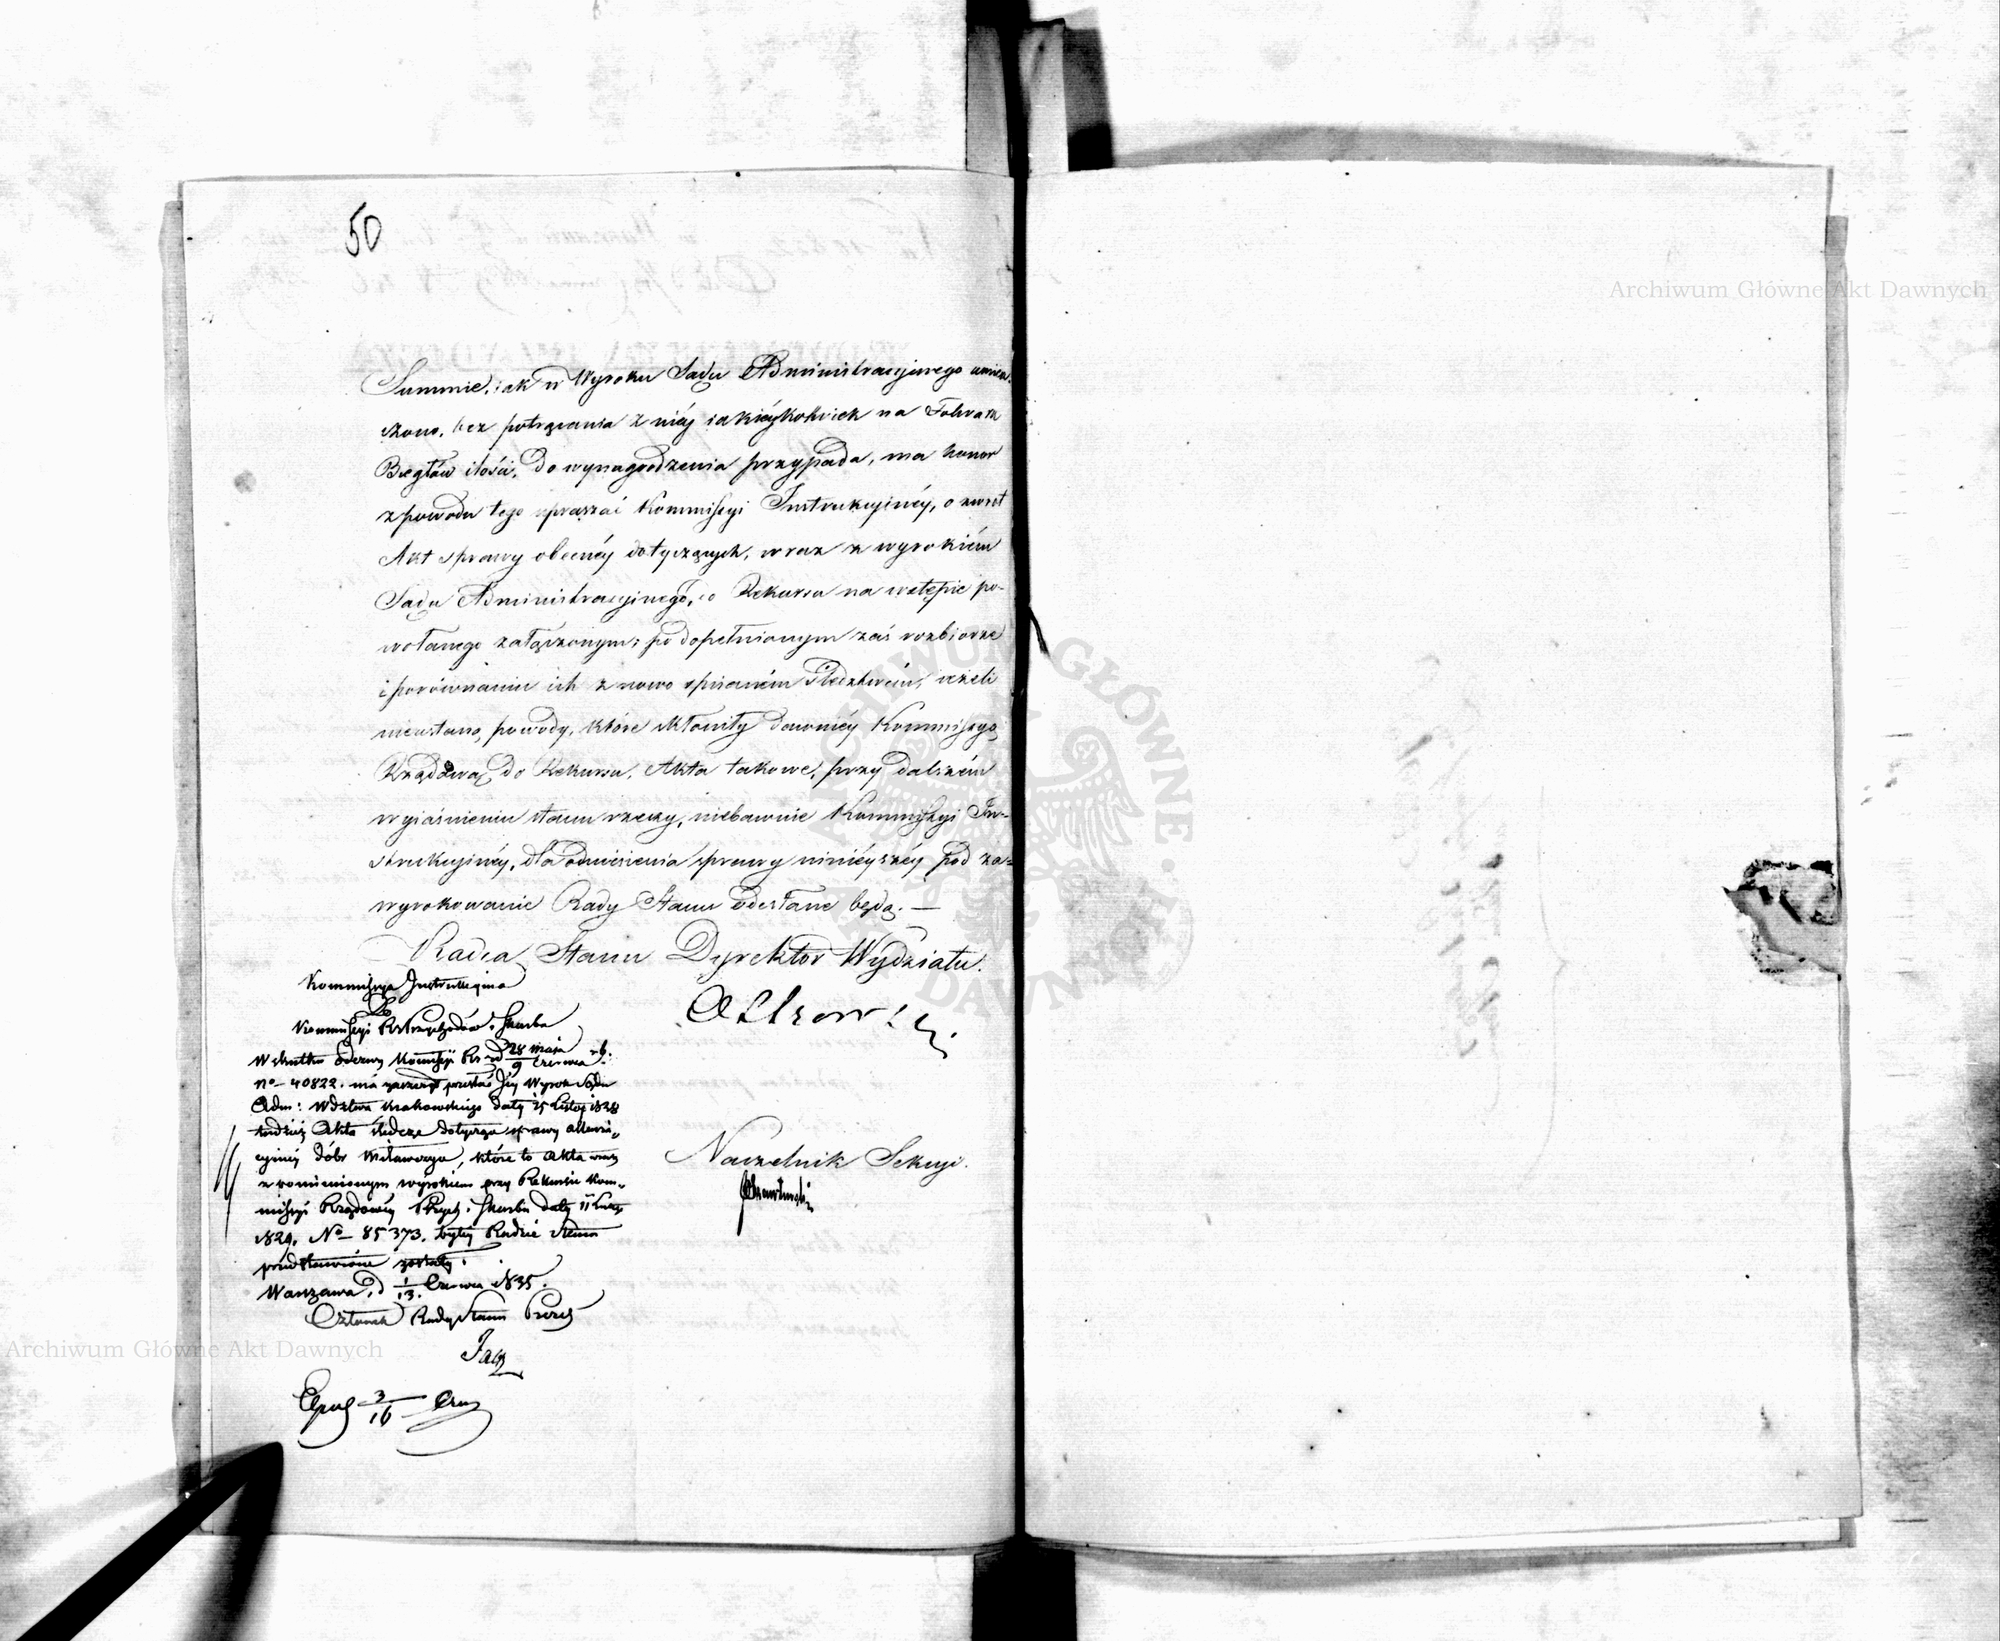 50
Summie, iak w Wyroku Sądu Administracyinego umiesz
czono, bez potrącania z niéy iakiéykolwiek na Folwark
Biegłów ilości, do wynagrodzenia przypada, ma honor
z powodu tego upraszać Kommissyi Instrukcyinéy, o zwrot
Akt sprawy obecnéy dotyczących, wraz z wyrokiém
Sądu Administracyinego, do Rekursu na wstępie po-
wołanego załączonym; po dopełnionym zaś rozbiorze
i porównaniu ich z nowo spisaném Śledztwém, ieżeli
nieustaną powody, które skłoniły dawniéy Kommissyą
Rządową do Rekursu, Akta takowe, przy dalszém
wyiaśnieniu stanu rzeczy, niebawnie Kommissyi In-
strukcyinéy, dla odniesienia sprawy ninieyszéy pod za=
wyrokowanie Rady Stanu odesłane będą. —
Radca Stanu Dyrektor Wydziału.
Kommissya Instrukcyina
Do
Kommissyi R. Przychodów i Skarbu
W skutku odezwy Kommissyi Rz. od 28 Maja / 9 Czerwca r.b.
No 40822. ma zaszczyt przesłać Jéy Wyrok Sądu
Adm: Wdztwa Krakowskiego daty 25 Listop 1828
tudzież Akta śledcze dotyczące sprawy
dóbr, które to Akta wraz
z wspomnionym wyrokiem przy Rekursie Kom-
missyi Rządowéy Przych. i Skarbu daty 11
1829. No 85373. byłéy Radzie Stanu
przedstawione zostały.
Warszawa, d 1/13. Czerwca 1835.
Członek Rady Stanu Prezes
Naczelnik Sekcyi.
Exped 3/16 Czer
Archiwum Główne Akt Dawnych
Archiwum Główne Akt Dawnych
ARCHIWUM GŁÓWNE AKT DAWNYCH